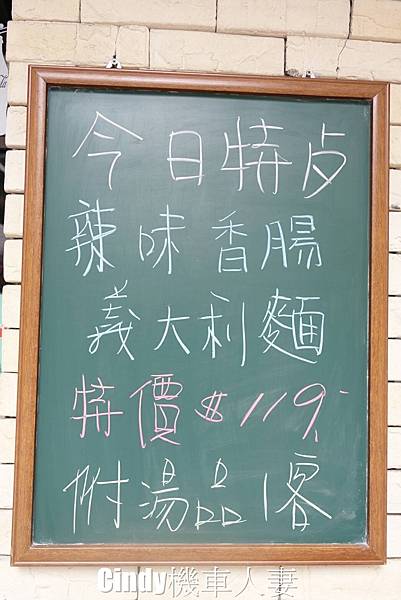 今日特点
辣味香腸
義大利麵
特價$119.-
附湯品1客
Cindy機車人妻